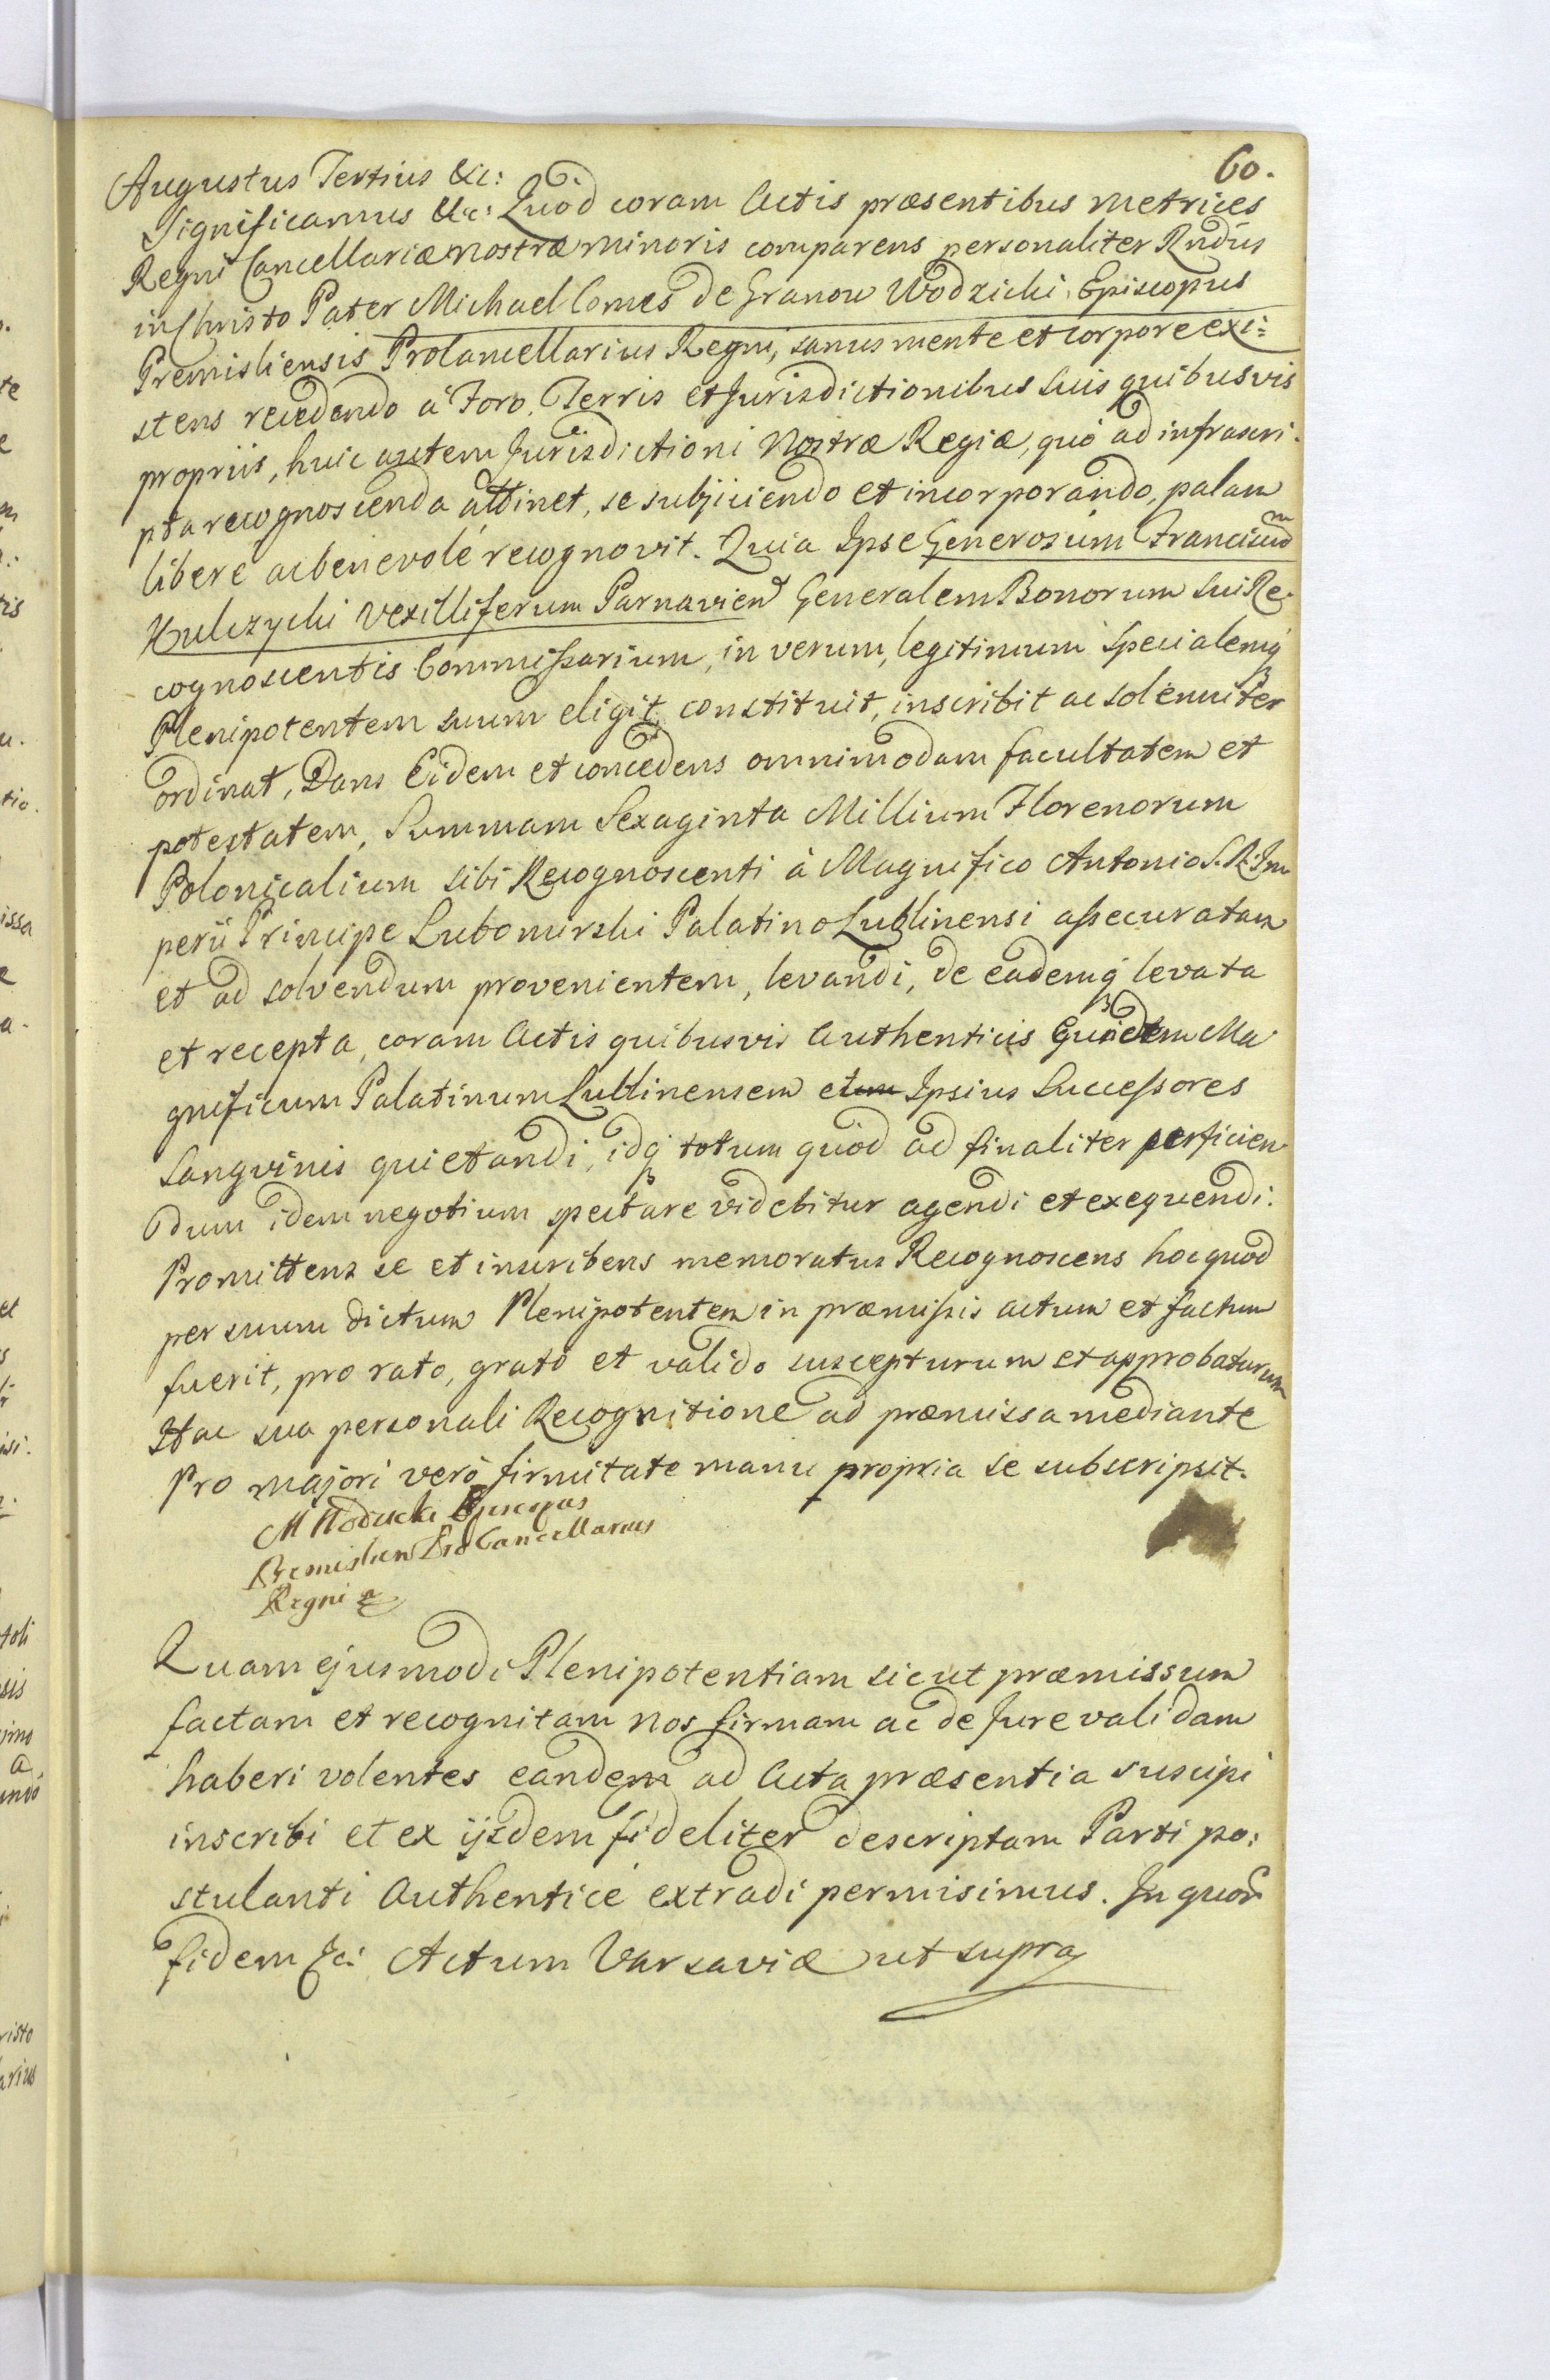 60.
Augustus Tertius &c:
Significamus &c: Quod coram Actis præsentibus Metrices
Regni Cancellariæ nostræ minoris comparens personaliter Rndus
in Christo Pater Michael Comes de Granow Wodzicki Episcopus
Premisliensis Procancellarius Regni, sanus mente et corpore exi:
stens recedendo á Foro, Terris et Jurisdictionibus suis quibusvis
propriis, huic autem Jurisdictioni Nostræ Regiæ, quó ad infrascri-
pta recognoscenda attinet, se subjiciendo et incorporando, palam
libere ac benevolé recognovit. Quia Ipse Generosum Franciscum
Kulczycki Vexilliferum Parnavien Generalem Bonorum sui Re-
cognoscentis Commissarium, in verum, legitimum specialemq
Plenipotentem suum eligit, constituit, inscribit ac solenniter
ordinat, Dans Eidem et concedens omnimodam facultatem et
potestatem, Summam Sexaginta Millium Florenorum
Polonicalium sibi Recognoscenti á Magnifico Antonio S. R. Im
perii Principe Lubomirski Palatino Lublinensi assecuratam
et ad solvendum provenientem, levandi, de eademq levata
et recepta, coram Actis quibusvis Authenticis Eundem Ma
gnificum Palatinum Lublinensem et Ipsius Successores
Sangvinis quietandi, idq totum quod ad finaliter perficien
dum idem negotium spectare videbitur agendi et exequendi.
Promittens se et inscribens memoratus Recognoscens hoc quod
per suum dictum Plenipotentem in præmissis actum et factum
fuerit, pro rato, grato et valido suscepturum et approbaturum
Hac sua personali Recognitione ad præmissa mediante
Pro majori veró firmitate manu propria se subscripsit.
M Wodzicki Episcopus
Premislien ProCancellarius
Regni
Quam ejusmodi Plenipotentiam sicut præmissum
factam et recognitam nos firmam ac de Jure validam
haberi volentes eandem ad Acta præsentia suscipi
inscribi et ex ijsdem fideliter descriptam Parti po:
stulanti Authenticé extradi permisimus. In quor
fidem &c: Actum Varsaviæ ut supra